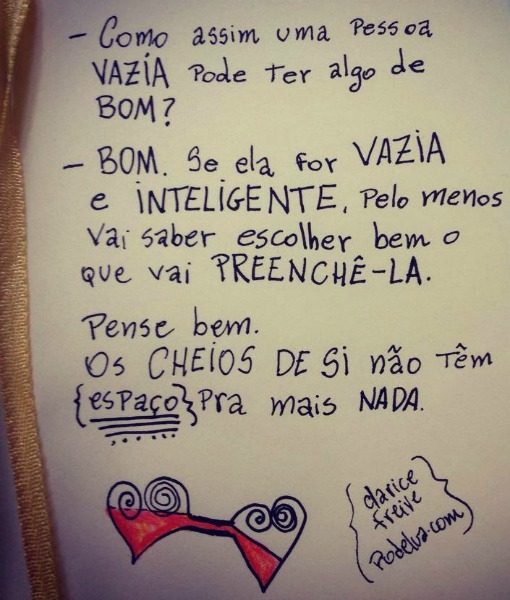 - Como assim uma pessoa
VAZÍA pode ter algo de
BOM?
- BOM. Se ela for VAZIA
e INTELIGENTE, pelo menos
vai saber escolher bem o
que vai PREENCHÊ-LA.
Pense bem.
Os CHEIOS DE Si não têm
{espaço} pra mais NADA.
{clarice
freire
Podelua.com}